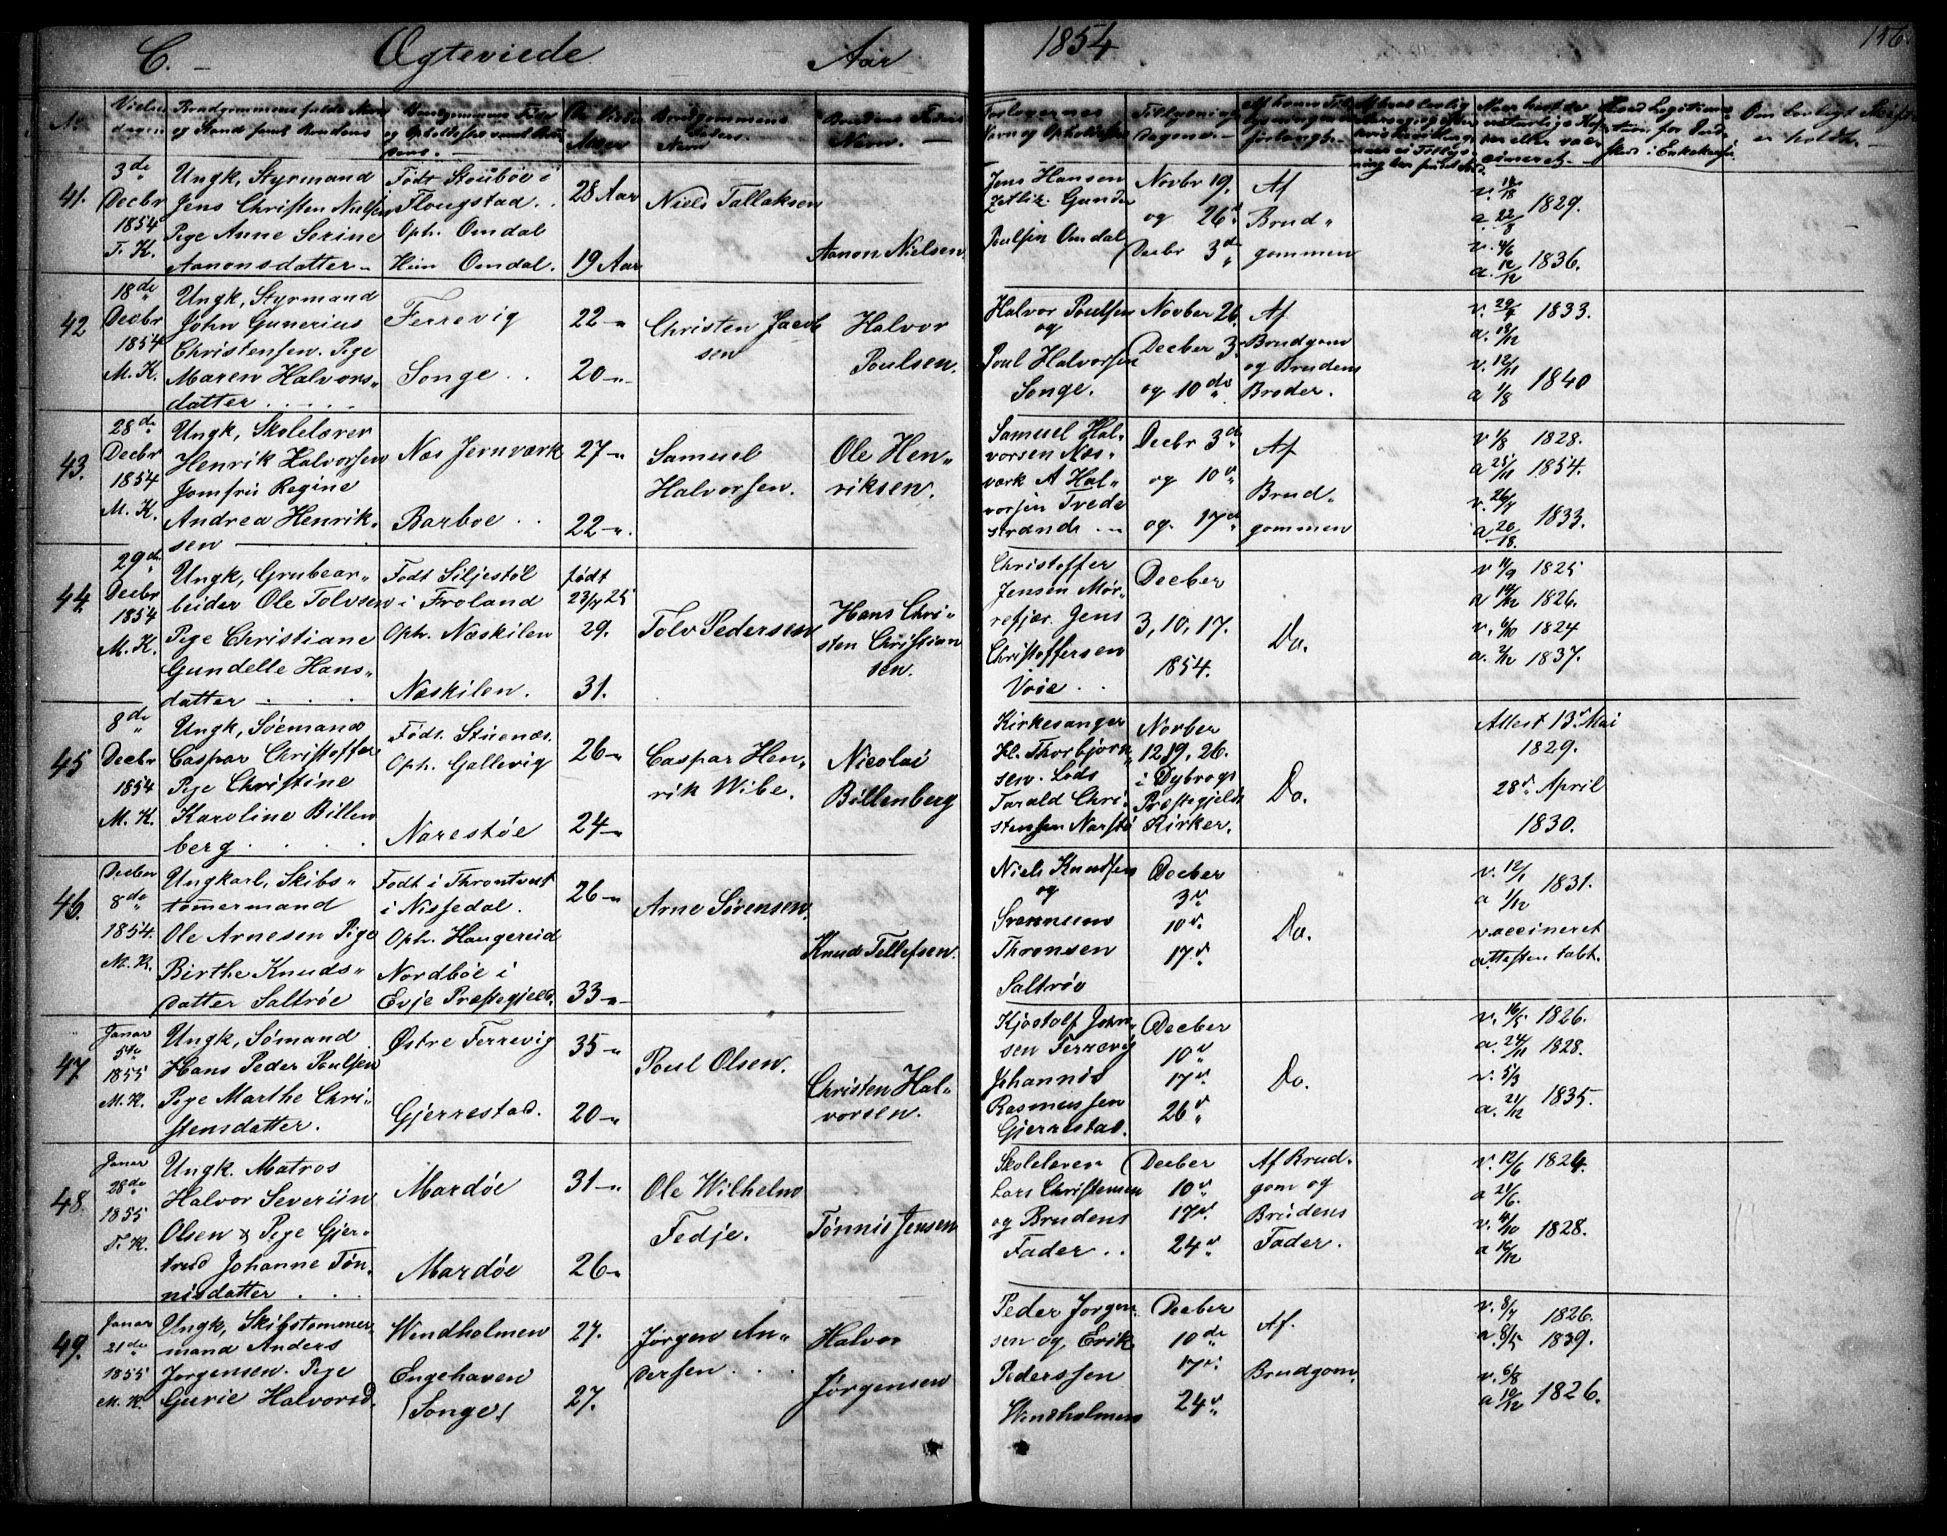 C. Ægteviede Aar 1854 156.
No. Vielsesdagen Brudgommens fulde Navn og Stand samt Brudens
Brudgommens Føde og Opholdssted samt Brudens
Aar Brudgommens Faders Navn Brudens Faders Navn.
Forlovernes Navn og Opholdssted Tillysnings Dagene. Af hvem Tillysningen er forlangt.
41. 3de Decbr 1854 T. K.
Ungk, Styrmand
Jens Christen Nielsen
Pige Anne Serine
Aanonsdatter
Født Stoubøe i
Flougstad..
Oph. Omdal
Him Omdal.
28 Aar
19 Aar
Niels Tallaksen
Aanon Nielsen
Jens Hansen
Zetlitz. Gunder
Poulsen Omdal
Novbr 19.
og 26d
Decbr 3d
Af
Brud"
gommen
1829.
1836.
42 18de Decbr 1854 M. K.
Ungk, Styrmand
John Gunerius
Christensen. Pige
Maren Halvors"
datter.....
Ferrevig
Songe..
22"
20"
Christen Jacob
sen
Halvor
Poulsen.
Halvor Poulsen
og
Poul Halvorsen
Songe.
Novber 26.
Decber 3.
og 10de
Af
Brudgom
og Brudens
Broder.
v. 29/4 1833.
a. 18/12
v. 12/11
a 1/8 1840
43. 28de Decbr 1854 M. K.
Ungk, Skolelærer
Henrik Halvorsen
Jomfru Regine
Andrea Henrik"
sen
Næs Jernværk
Barboe..
27"
22"
Samuel
Halvorsen.
Ole Hen"
riksen.
Samuel Hal"
vorsen Næs"
værk A Hal"
vorsen Tvede
strand
Decbr 3de
og 10d
og 17d
Af
Brud"
gommen
v 1/8 1828.
a 25/11 1854.
v. 26/7
a 20/18. 1833.
44. 29de Decbr 1854 M. K.
Ungk, Grubear"
beider Ole Tolvsen
Pige Christiane
Gundelle Hans"
datter
Født Siljestøl
i Froland
Oph. Næskilen
Næskilen.
født
23/4 25
29.
31.
Tolv Pedersen
Hans Chri"
sten Christian
sen.
Christoffer
Jensen Mør"
refjær. Jens
Christoffersen
Voie..
Decber
3, 10, 17.
1854.
Do.
v 11/9 1825
a 14/12 1826.
v. 6/10 1824
a. 2/12 1837.
45 8de Decbr 1854 M. K.
Ungk, Søemand
Caspar Christoffer
Pige Christine
Karoline Billen
berg....
Født. Stuenæs.
Oph. Gallevig
Narestøe
26"
24"
Caspar Hen"
rik Wibe.
Nicolai
Billenberg
Kirkesanger
Hl. Thorbjørn"
sen. Lods
Tarald Chri"
stensen Narstø
Novber
12, 19, 26.
i Dybvogs
Præstegjelds
Kirker.
Do.
Attest 13d Mai
1829.
28d April
1830.
46. Decber 8de 1854. M. K.
Ungkarl, Skibs"
tømmermand
Ole Arnesen Pige
Birthe Knuds"
datter Saltrøe
Født i Throntveit
i Nissedal.
Oph. Haugereid
Nordbøe i
Evje Præstegjeld.
26"
33"
Arne Sørensen.
Knud Tellefsen.
Niels Knudsen
og
Svennum
Thronsen
Saltrøe
Decber
3d
10d.
17d
Do.
v. 12/1 1831.
a 1/12
vaccineret
attesten tabt.
47. Januar 5te 1855 M. K.
Ungk, Sømand
Hans Peder Poulsen
Pige Marthe Chri"
stensdatter.
Østre Ferrevig
Gjerrestad.
35"
20"
Poul Olsen.
Christen Hal"
vorsen.
Kjøstolf John"
sen Ferrevig
Johannis
Rasmussen
Gjerrestad.
Decber
10d
17d.
26d
Do.
v. 16/5 1826.
a. 24/11 1828.
v. 5/3
a. 21/12 1835.
48. Januar 28de 1855 T. K.
Ungk. Matros
Halvor Severiin
Olsen & Pige Gjer"
trud Johanne Tøn"
nisdatter...
Mardøe
Mardøe
31"
26"
Ole Wilhelm
Fedje.
Tønnis Jensen
Skolelærer
Lars Christensen
og Brudens
Fader..
Decber
10d
17d.
24d
Af Brud.
gom og
Brudens
Fader.
v. 12/6 1824.
a 21/6.
v. 4/10
a 16/12 1828.
49. Januar 21de 1855 M. K
Ungk, Skibstømmer
mand Anders
Jørgensen. Pige
Gurie Halvorsd.
Windholmen
Engehaven
(Songe)
27.
27.
Jørgen An"
dersen...
Halvor
Jørgensen
Peder Jørgen
sen og Erik
Pederssen
Windholmen
Decber
10de
17d.
24d
Af.
Brudgom.
v. 8/7 1826.
a. 8/5 1839.
v. 6/8
a 10/12 1826.